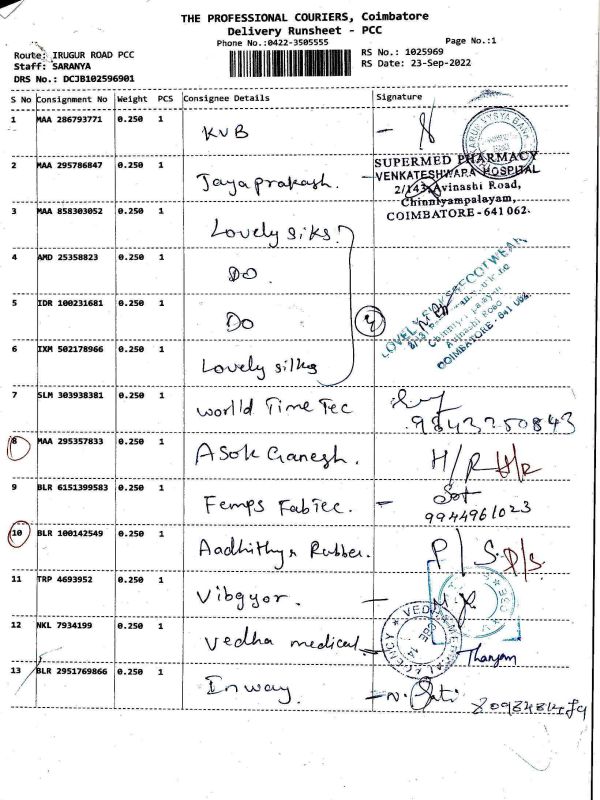 THE PROFESSIONAL COURIERS, Coimbatore
Delivery Runsheet - PCC
Phone No.:0422-3505555
Page No.:1
Route: IRUGUR ROAD PCC
RS No.: 1025969
Staff: SARANYA
RS Date: 23-Sep-2022
DRS No.: DCJB102596901
S No Consignment No Weight PCS Consignee Details Signature
1 MAA 286793771 0.250 1 KVB
2 MAA 295786847 0.250 1 Jayaprakash.
SUPERMED PHARMACY
VENKATESHWARA HOSPITAL
2/143, Avinashi Road,
Chinniyampalayam,
COIMBATORE - 641 062.
3 MAA 858303052 0.250 1 Lovely siks.
4 AMD 25358823 0.250 1 DO.
5 IDR 100231681 0.250 1 DO
4
LOVELY FOOTWEAR
Avinashi Road
COIMBATORE - 641 062.
6 IXM 502178966 0.250 1 Lovely silks
7 SLM 303938381 0.250 1 world Time Tec
9843250843
8 MAA 295357833 0.250 1 ASok Ganesh. H/R H/R
9 BLR 6151399583 0.250 1 Femps Fabtec.
9944961023
10 BLR 100142549 0.250 1 Aadhithya Rubber. P/S. P/S.
11 TRP 4693952 0.250 1 Vibgyor.
12 NKL 7934199 0.250 1 vedha medical
Thangam
13 BLR 2951769866 0.250 1 Inway.